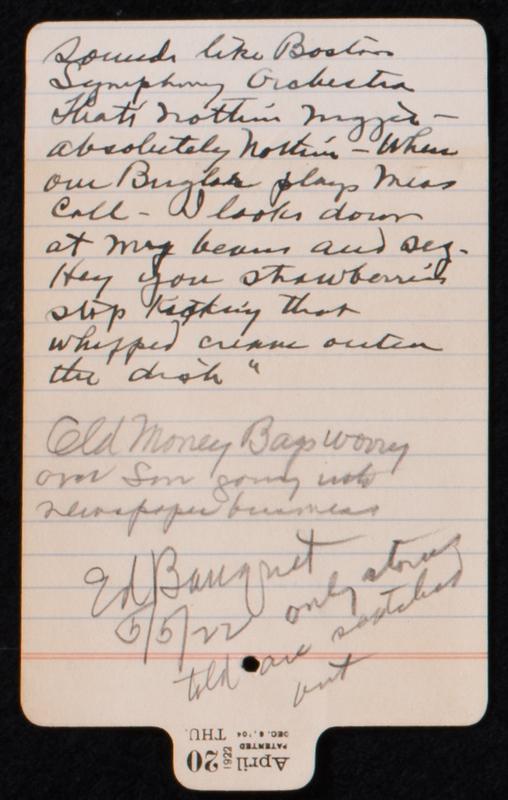 sounds like Boston
Symphony Orchestra
That's nothin nigger –
absolutely Nothin – When
our Bugler plays Mess
Call – I looks down
at my beans and sez.
Hey you strawberries
stop kicking that
whipped cream outen
the dish "
Old Money Bags worry
over Son going into
newspaper business
Ed Banquet
5/5/22 only stories
told are scratched
out
April
20
1922
THU.
PATENTED
DEC. 6, '04